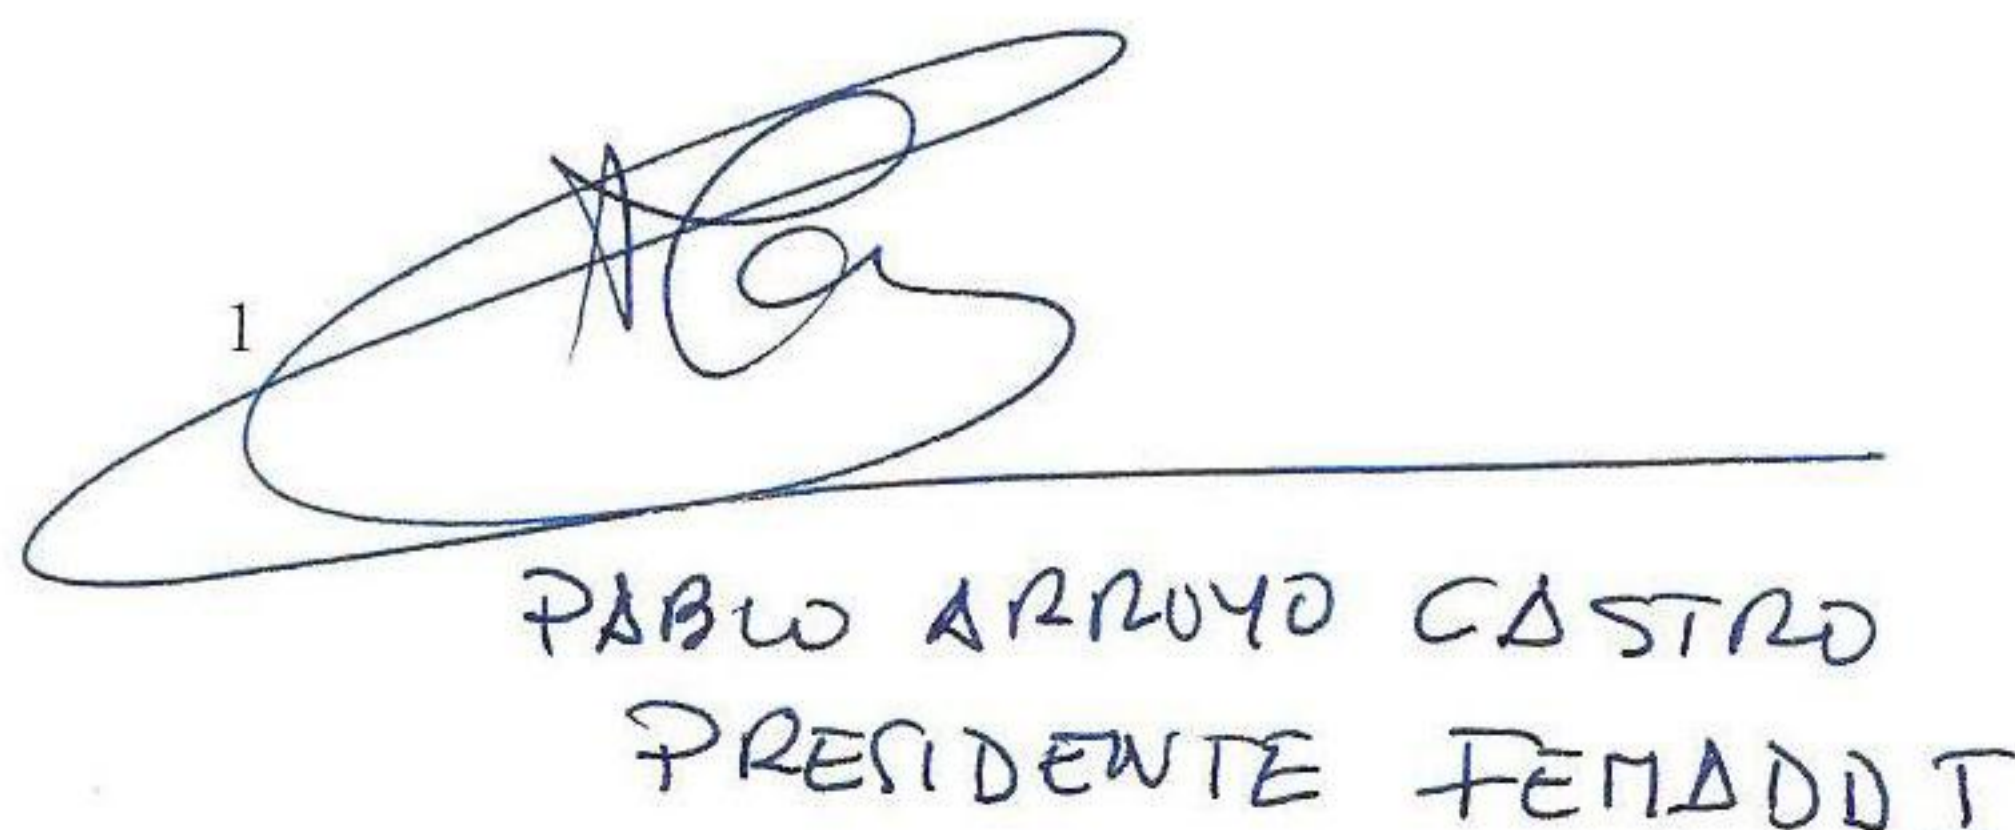 1
PABLO ARROYO CASTRO
PRESIDENTE FEMADDT